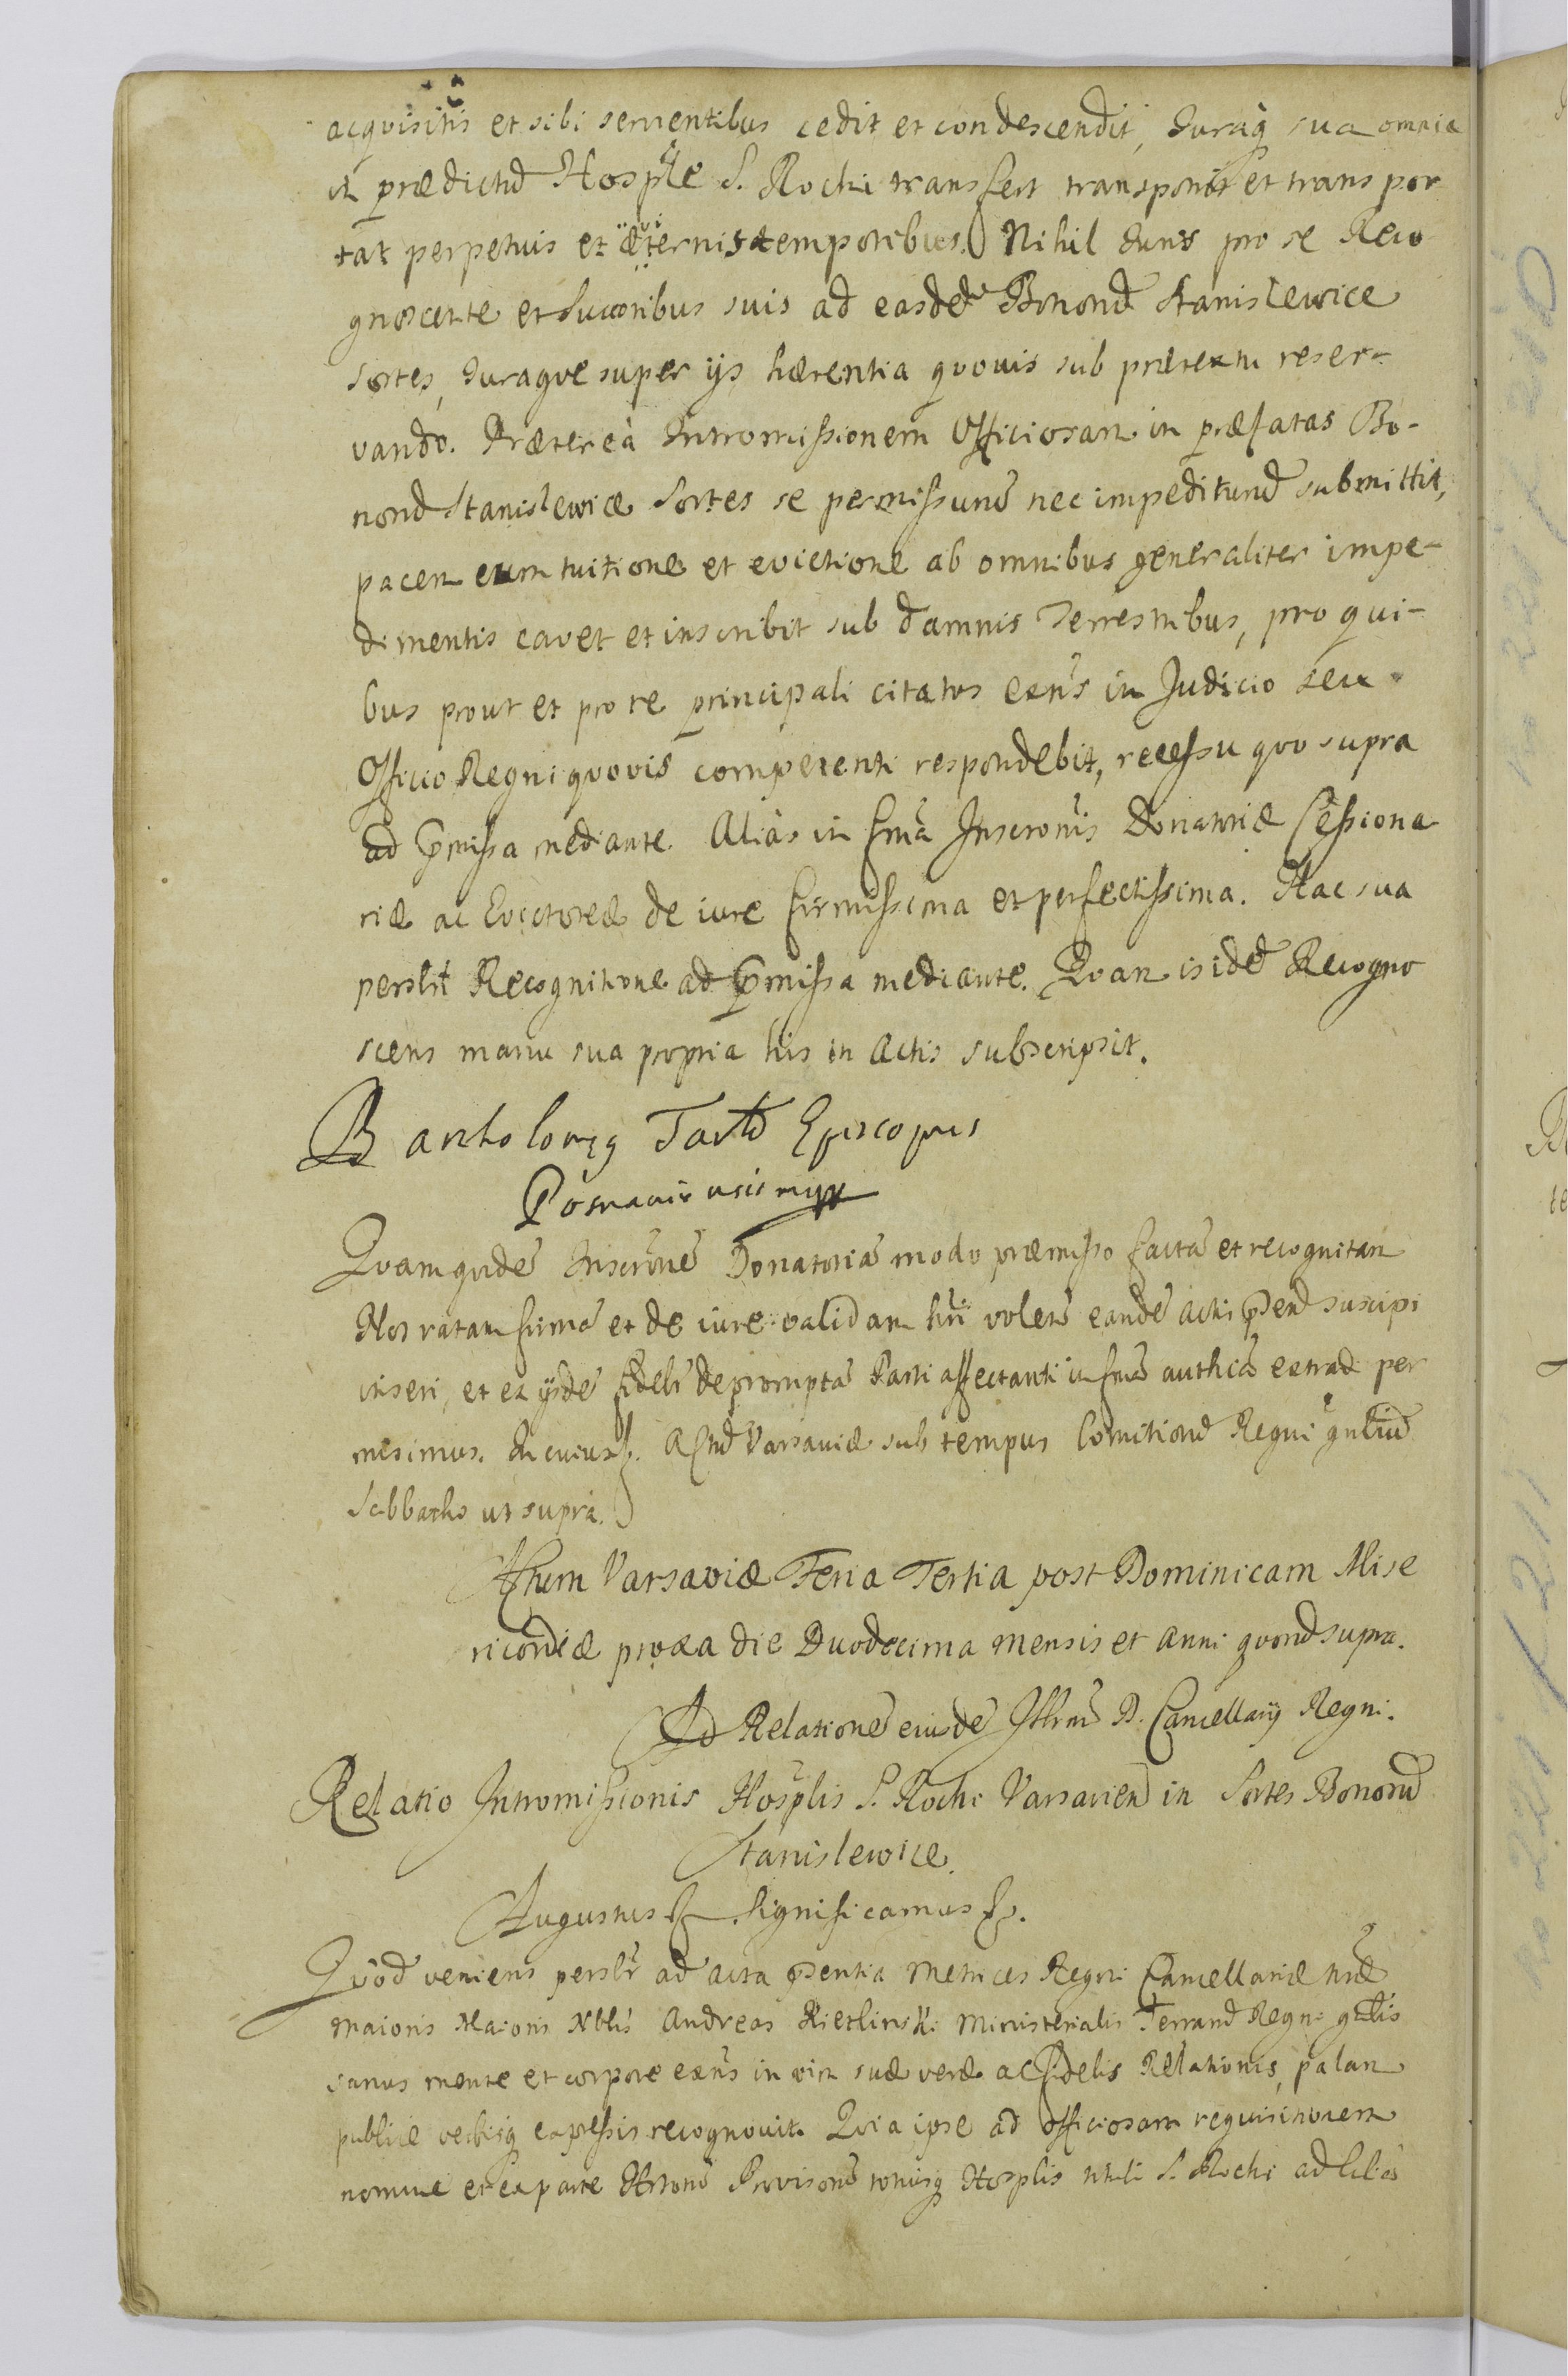 acqvisitis et sibi servientibus cedit et condescendit, Juraq̃ sua omnia
in prædictũ Hosple S. Rochi transfert transponit et transpor
tat perpetuis et æviternis temporibus. Nihil Juris pro se Reco
gnoscente et Succoribus suis ad easdẽ Bonorũ Stanislewice
Sortes, Juraqve super ijs hærentia qvovis sub prætextu reser-
vando. Præterea Intromissionem Officiosam in præfatas Bo-
norũ Stanislewice Sortes se permissurũ nec impediturũ submittit,
pacem cum tuitione et evictione ab omnibus generaliter impe-
dimentis cavet et inscribit sub damnis Terrestribus, pro qvi-
bus prout et pro re principali citatus exñs in Judicio seu
Officio Regni qvovis competenti respondebit, recessu qvo supra
ad p̃missa mediante. Alias in fm̃a Inscronis Donatoriæ Cessiona
riæ ac Evictoreæ de iure firmissima et perfectissima. Hac sua
persl̃i Recognitione ad p̃missa mediante. Qvam is idẽ Recogno
scens manu sua propria his in Actis subscripsit.
Bartholomeg Tarło Episcopus
Posnaniensis mpp
Qvamqvidẽ Inscronẽ Donatoriã modo præmisso factã et recognitam
Nos ratam firmã et de iure validam hr̃i volen̄ eandẽ actis p̃sen̄ suscipi
inseri, et ex ijsdẽ fideli depromptã Parti affectanti in fm̃a authcã extrad per
misimus. In cuius. Actũ Varsaviæ sub tempus Comitiorũ Regni gnlium
Sabbatho ut supra.
Actum Varsaviæ Feria Tertia post Dominicam Mise
ricordiæ proxa die Duodecima mensis et Anni qvorũ supra.
Ad Relationẽ eiusdẽ Illrmi D. Cancellarij Regni.
Relatio Intromissionis Hosplis S. Rochi Varsavien in Sortes Bonorũ
Stanislewice.
Augustus. Significamus.
Qvod veniens persl̃r ad acta p̃sentia Metrices Regni Cancellariæ nr̃æ
maioris Maioris Nblis Andreas Kietlinski Ministerialis Terrarũ Regni gnlis
sanus mente et corpore exñs in vim suæ veræ ac fidelis Relationis, palam
publice verbisq̃ expressis recognovit. Qvia ipse ad officiosam reqvisitionem
nomine et ex parte Provisorũ totiusq̃ Hosplis S. Rochi ad